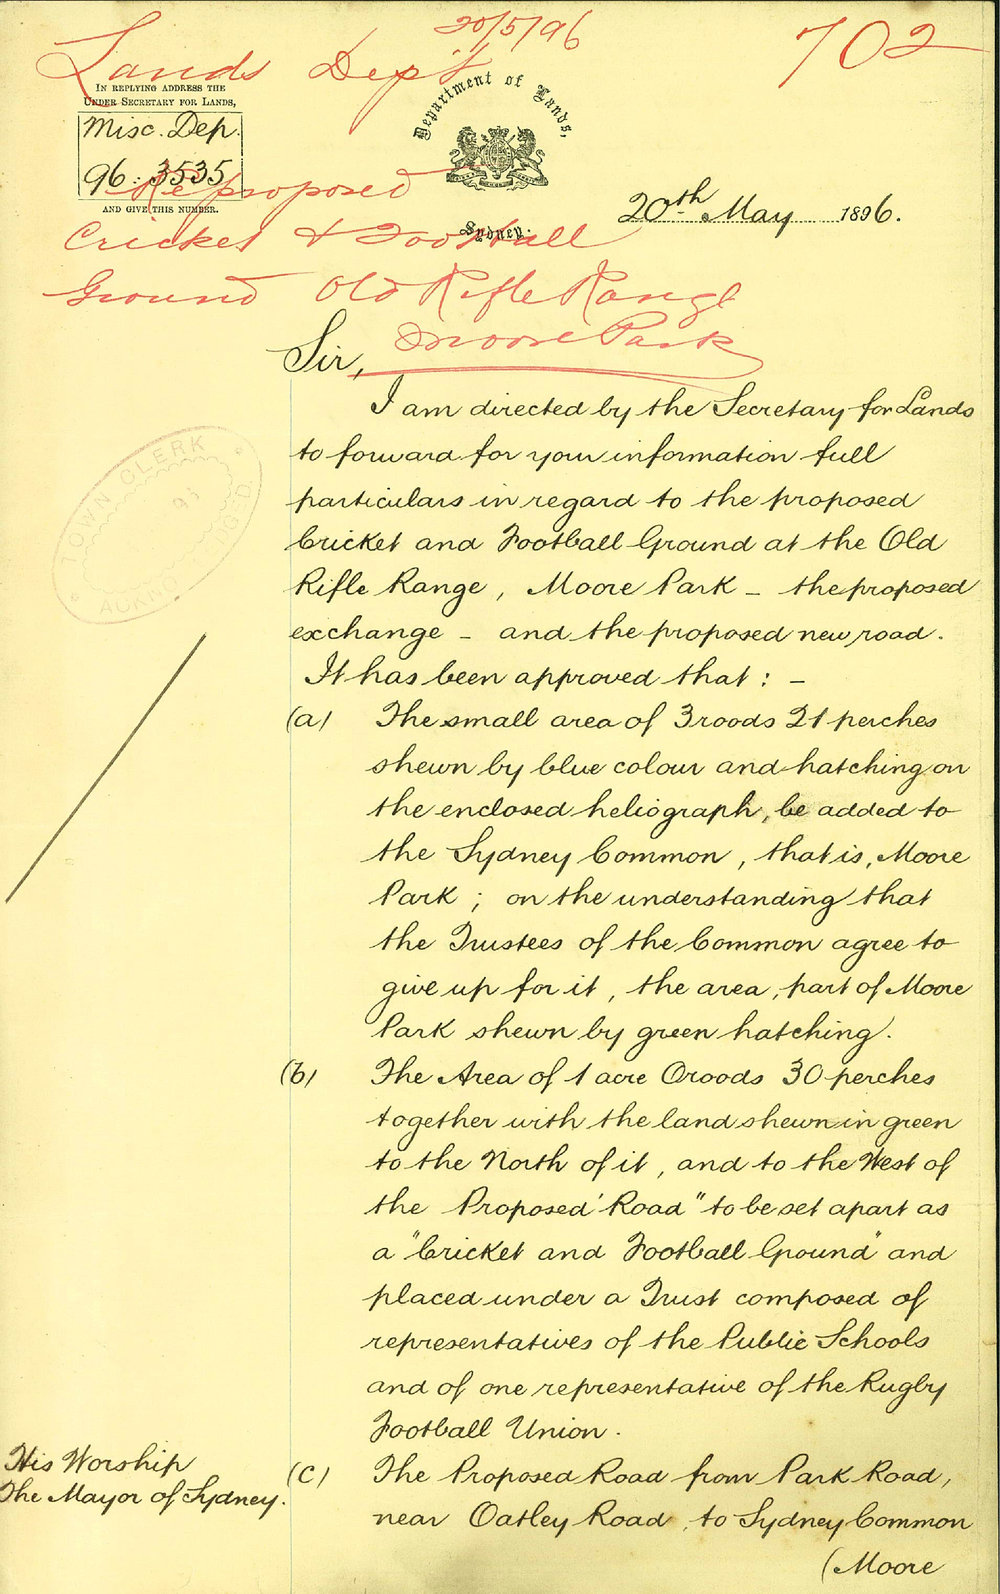 20/5/96
702
Lands Dep't
In replying address the
Under Secretary for Lands,
Misc. Dep.
96: 3535
and give this number.
Department of Lands,
Sydney.
Re proposed
Cricket & Football
Ground Old Rifle Range
Moore Park
20th May 1896.
Sir,
I am directed by the Secretary for Lands
to forward for your information full
particulars in regard to the proposed
Cricket and Football Ground at the Old
Rifle Range, Moore Park - the proposed
exchange - and the proposed new road.
It has been approved that: -
(a) The small area of 3 roods 21 perches
shewn by blue colour and hatching on
the enclosed heliograph, be added to
the Sydney Common, that is, Moore
Park; on the understanding that
the Trustees of the Common agree to
give up for it, the area, part of Moore
Park shewn by green hatching.
(b) The Area of 1 acre 0 roods 30 perches
together with the land shewn in green
to the North of it, and to the West of
the Proposed "Road" to be set apart as
a "Cricket and Football Ground" and
placed under a Trust composed of
representatives of the Public Schools
and of one representative of the Rugby
Football Union.
(c) The Proposed Road from Park Road,
near Oatley Road, to Sydney Common
(Moore
His Worship
The Mayor of Sydney.
TOWN CLERK
ACKNOWLEDGED